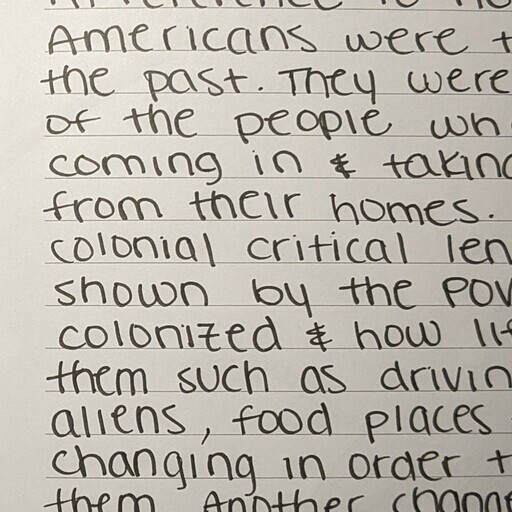 Americans were
the past. They were
of the people
coming in &
from their homes.
colonial critical
shown by the
colonized & how
them such as
aliens, food places
changing in order
them. Another